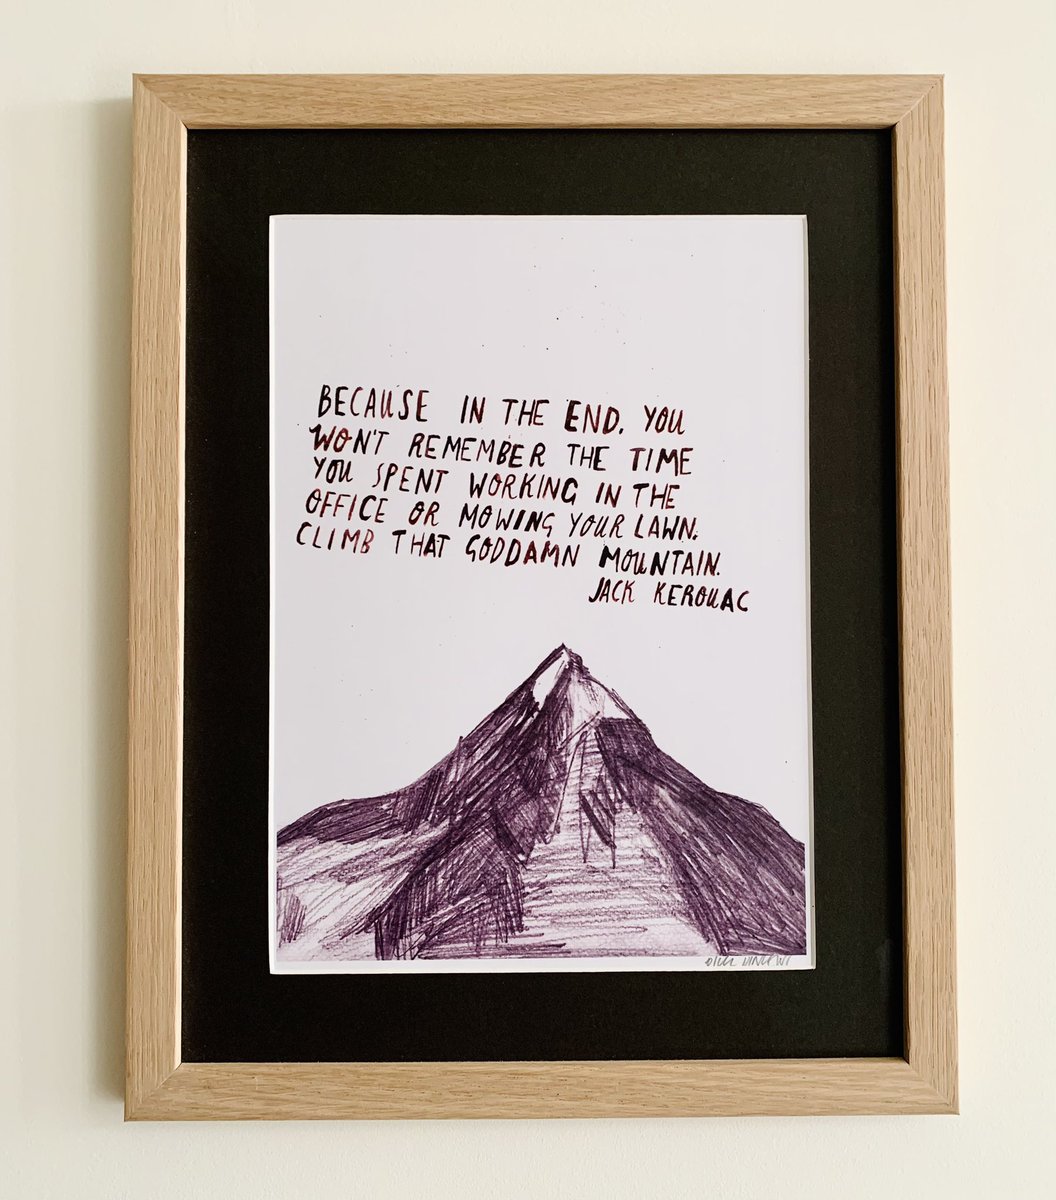 BECAUSE IN THE END, YOU
WON'T REMEMBER THE TIME
YOU SPENT WORKING IN THE
OFFICE OR MOWING YOUR LAWN.
CLIMB THAT GODDAMN MOUNTAIN.
JACK KEROUAC